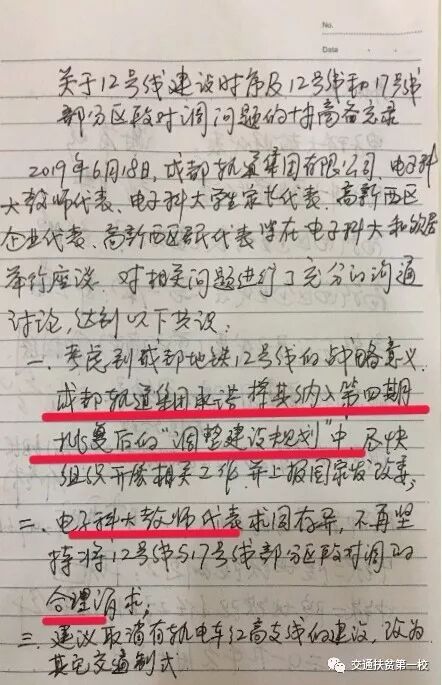 No.
Date
关于12号线建设时序及12号线和17号线
部分区段对调问题的协商备忘录
2019年6月18日,成都轨道集团有限公司、电子科
大教师代表、电子科大学生家长代表、高新西区
企业代表、高新西区居民代表等在电子科大和
举行座谈,对相关问题进行了充分的沟通
讨论,达到以下共识:
一、考虑到成都地铁12号线的战略意义,
成都轨道集团承诺择其纳入第四期
批复后的“调整建设规划”中,尽快
组织开展相关工作,并上报国家发改委;
二、电子科大教师代表求同存异,不再坚
持将12号线与17号线部分区段对调的
合理诉求;
三、建议取消有轨电车红高支线的建设,改为
其它交通制式
交通扶贫第一校